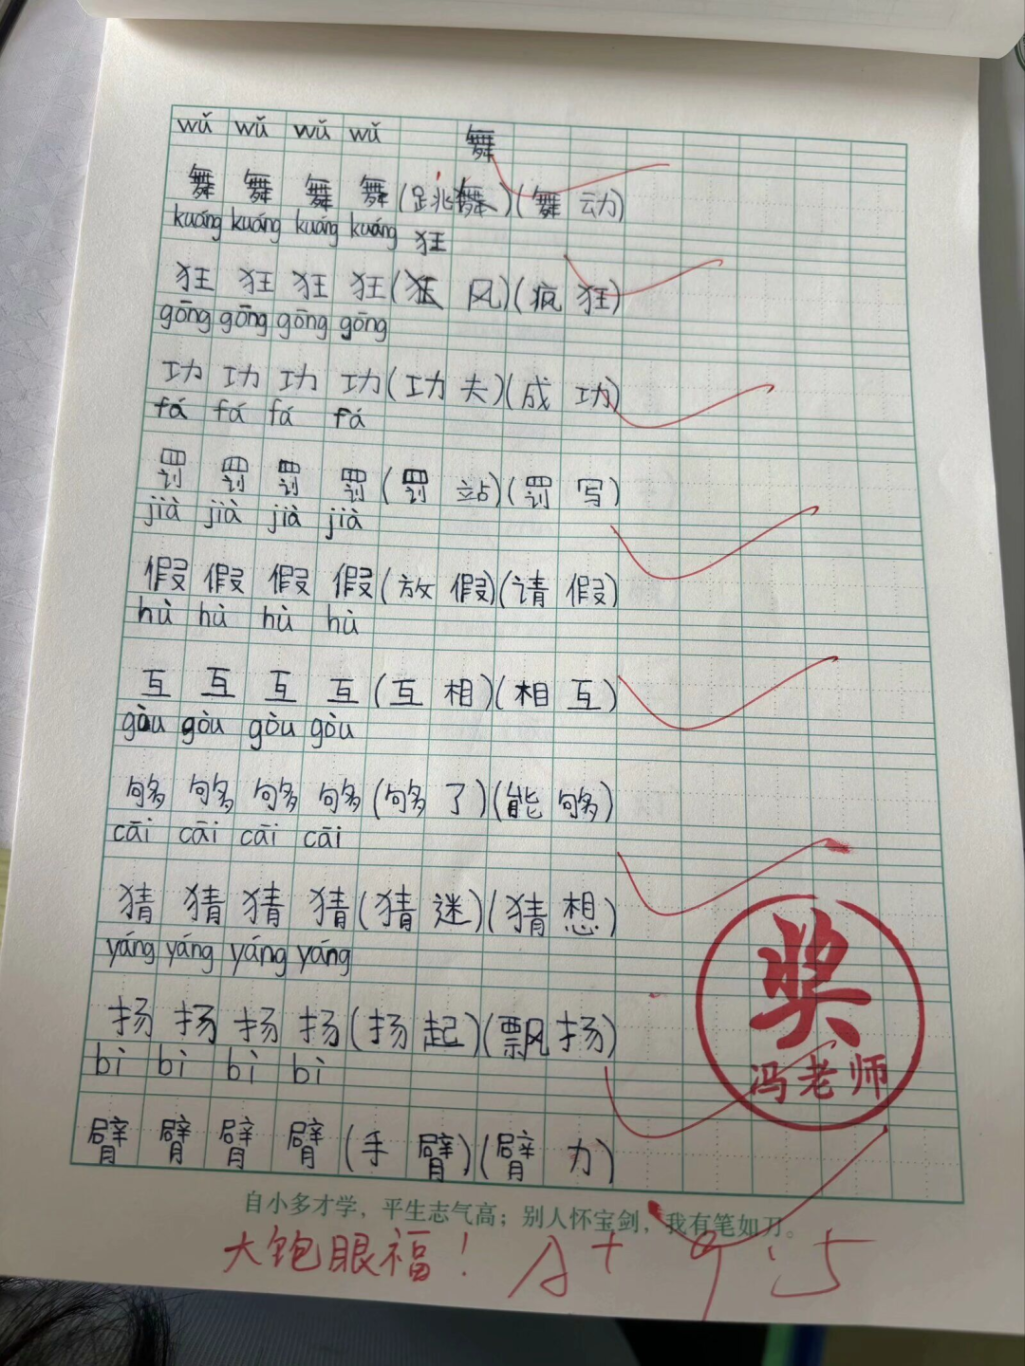 wǔ wǔ wǔ wǔ 舞
舞 舞 舞 舞 (跳舞)(舞动)
kuáng kuáng kuáng kuáng 狂
狂 狂 狂 狂 (狂风)(疯狂)
gōng gōng gōng gōng
功 功 功 功 (功夫)(成功)
fá fá fá fá
罚 罚 罚 罚 (罚站)(罚写)
jià jià jià jià
假 假 假 假 (放假)(请假)
hù hù hù hù
互 互 互 互 (互相)(相互)
gòu gòu gòu gòu
够 够 够 够 (够了)(能够)
cāi cāi cāi cāi
猜 猜 猜 猜 (猜迷)(猜想)
yáng yáng yáng yáng
扬 扬 扬 扬 (扬起)(飘扬)
bì bì bì bì
臂 臂 臂 臂 (手臂)(臂力)
奖
冯老师
自小多才学，平生志气高；别人怀宝剑，我有笔如刀。
大饱眼福！ A+ 9.5